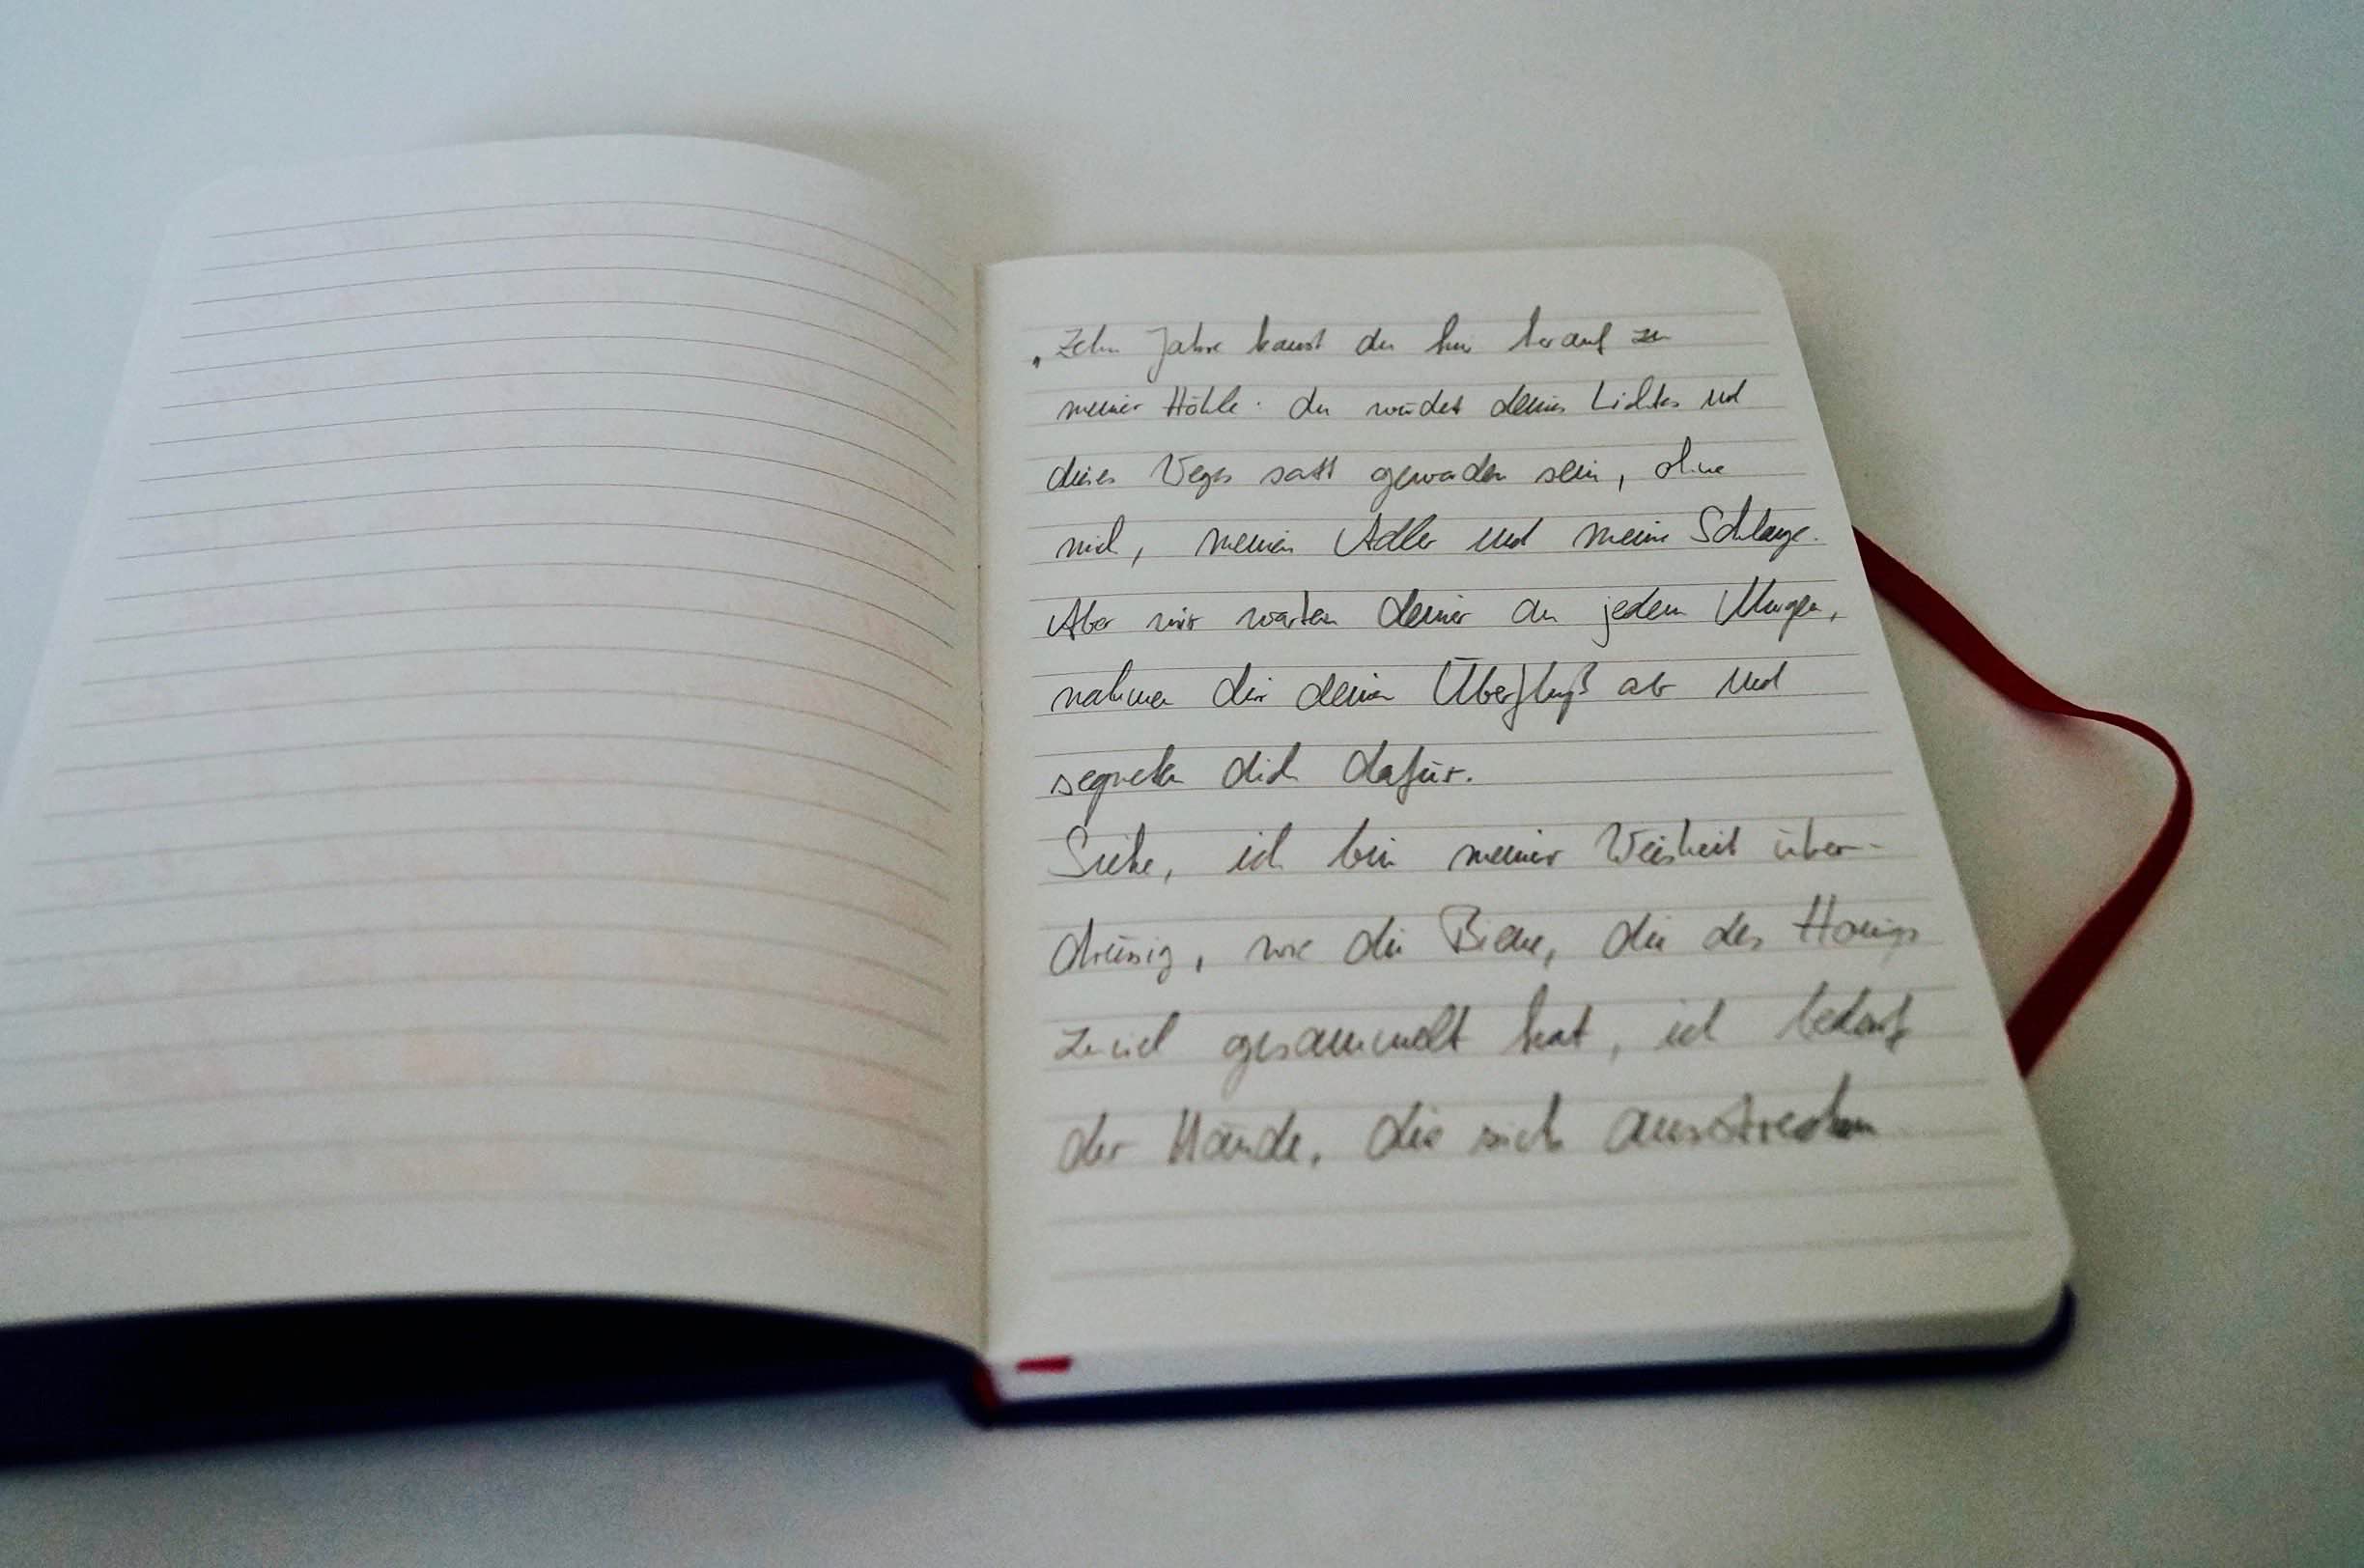 „Zehn Jahre kamst du hier herauf zu
meiner Höhle: du würdest deines Lichtes und
dieses Weges satt geworden sein, ohne
mich, meinen Adler und meine Schlange.
Aber wir warteten deiner an jedem Morgen,
nahmen dir deinen Überfluß ab und
segneten dich dafür.
Siehe, ich bin meiner Weisheit über-
drüssig, wie die Biene, die des Honigs
zuviel gesammelt hat, ich bedarf
der Hände, die sich ausstrecken